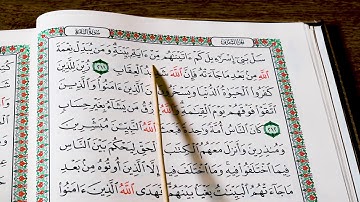 سَلْ بَنِىٓ إِسْرَٰٓءِيلَ كَمْ ءَاتَيْنَٰهُم مِّنْ ءَايَةٍۭ بَيِّنَةٍ وَمَن يُبَدِّلْ نِعْمَةَ
ٱللَّهِ مِنۢ بَعْدِ مَا جَآءَتْهُ فَإِنَّ ٱللَّهَ ٱلْعِقَابِ ٢١١ زُيِّنَ لِلَّذِينَ
كَفَرُوا۟ ٱلْحَيَوٰةُ ٱلدُّنْيَا وَيَسْخَرُونَ ٱلَّذِينَ ءَامَنُوا۟ وَٱلَّذِينَ
ٱتَّقَوْا۟ فَوْقَهُمْ يَوْمَ ٱلْقِيَٰمَةِ وَٱللَّهُ يَرْزُقُ مَن يَشَآءُ بِغَيْرِ حِسَابٍ
٢١٢ كَانَ ٱلنَّاسُ أُمَّةً وَٰحِدَةً فَبَعَثَ ٱللَّهُ ٱلنَّبِيِّـۧنَ مُبَشِّرِينَ
وَمُنذِرِينَ وَأَنزَلَ مَعَهُمُ ٱلْكِتَٰبَ بِٱلْحَقِّ لِيَحْكُمَ بَيْنَ ٱلنَّاسِ
فِيمَا ٱخْتَلَفُوا۟ فِيهِ وَمَا ٱخْتَلَفَ فِيهِ إِلَّا ٱلَّذِينَ أُوتُوهُ مِنۢ بَعْدِ
مَا جَآءَتْهُمُ ٱلْبَيِّنَٰتُ بَغْيًۢا بَيْنَهُمْ فَهَدَى ٱللَّهُ ٱلَّذِينَ ءَامَنُوا۟